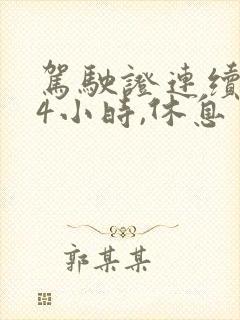 駕駛證連續
4小時,休息
郭某某